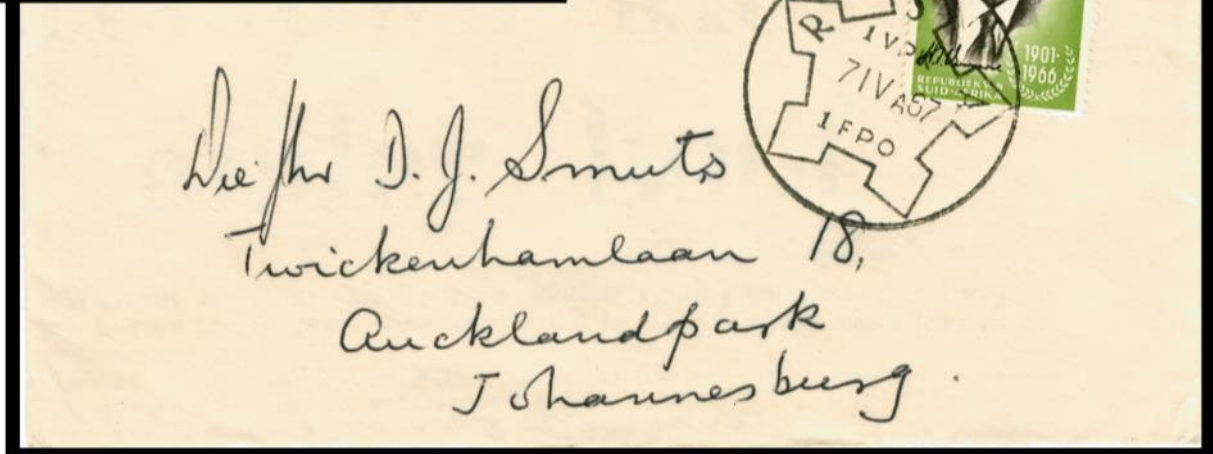 R S
1 VP
7 IV A67
1 FPO
1901-
1966
REPUBLIEK VAN
SUID-AFRIKA
Die Mnr D. J. Smuts
Twickenhamlaan 18,
Aucklandpark
Johannesburg.